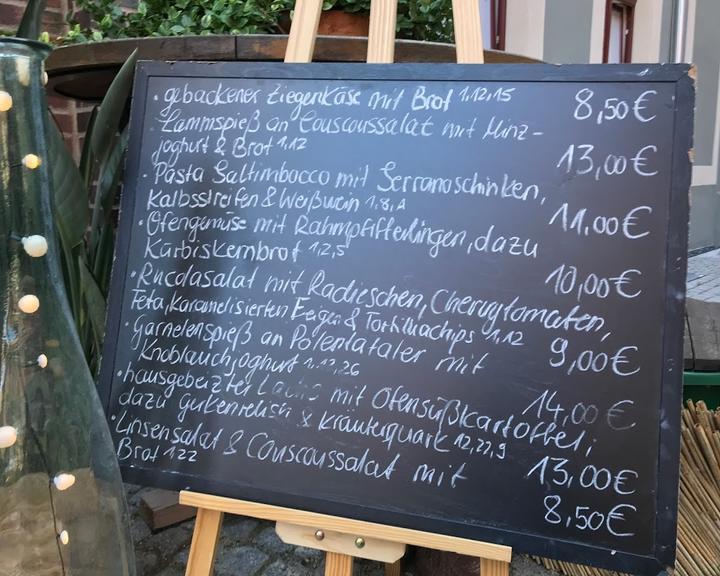 • gebackener Ziegenkäse mit Brot 1,12,15 8,50€
Lammspieß an Couscoussalat mit Minz-
joghurt & Brot 1,12 13,00€
• Pasta Saltimbocco mit Serranoschinken,
Kalbsstreifen & Weißwein 1,8,A 11,00€
• Ofengemüse mit Rahmpfifferlingen, dazu
Kürbiskernbrot 1,2,5 10,00€
• Rucolasalat mit Radieschen, Cherrytomaten,
Feta, Karamelisierten Feigen & Tortillachips 1,12 9,00€
• Garnelenspieß an Polentataler mit
Knoblauchjoghurt 1,12,26 14,00€
• hausgebeizter Lachs mit Ofensüßkartoffel,
dazu gurkenrelish & Kräuterquark 12,22,9 13,00€
• Linsensalat & Couscoussalat mit
Brot 1,22 8,50€